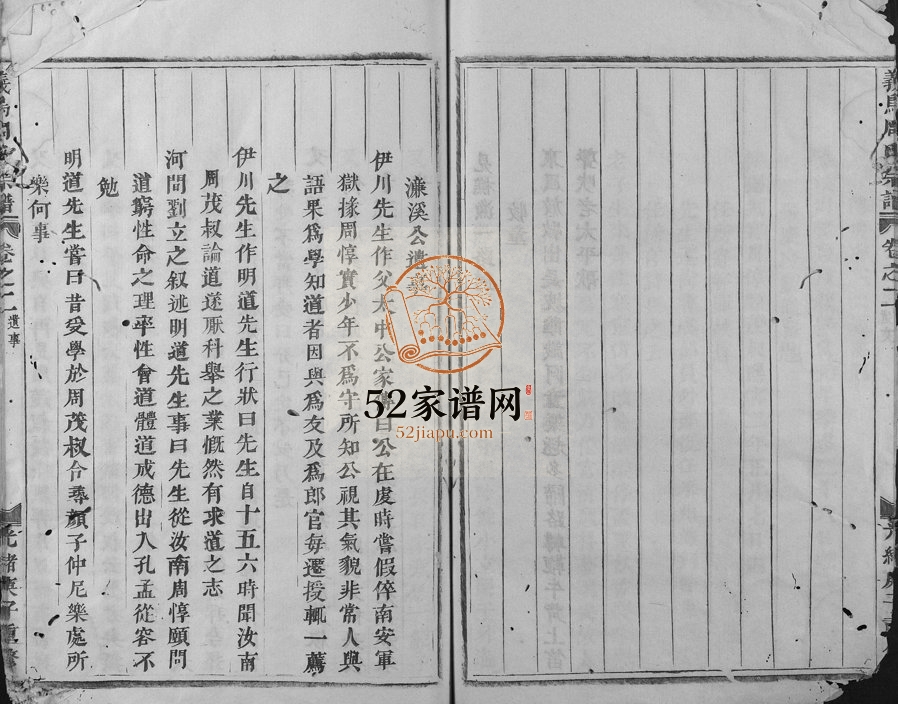 濂溪公遺事
伊川先生作父太中公家傳曰公在虔時嘗假倅南安軍
獄掾周惇實少年不爲守所知公視其氣貌非常人與
語果爲學知道者因與爲友及爲郎官每遷授輒一薦
之
伊川先生作明道先生行狀曰先生自十五六時聞汝南
周茂叔論道遂厭科舉之業慨然有求道之志
河間劉立之叙述明道先生事曰先生從汝南周惇頤問
道窮性命之理率性會道體道成德出入孔孟從容不
勉
明道先生嘗曰昔受學於周茂叔令尋顔子仲尼樂處所
樂何事
義烏周氏宗譜 卷之二 遺事 光緒庚子重修
義烏周氏宗譜 卷之二 光緒庚子重
52家谱网
52jiapu.com